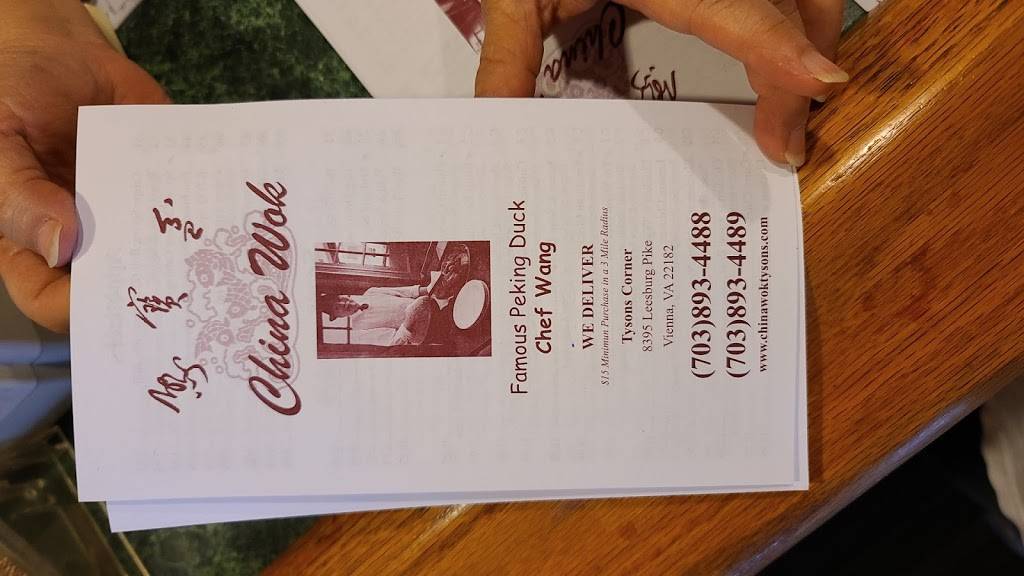 China Wok
Famous Peking Duck
Chef Wang
WE DELIVER
$15 Minimun Purchase in a 3 Mile Radius
Tysons Corner
8395 Leesburg Pike
Vienna, VA 22182
(703)893-4488
(703)893-4489
www.chinawoktysons.com
China